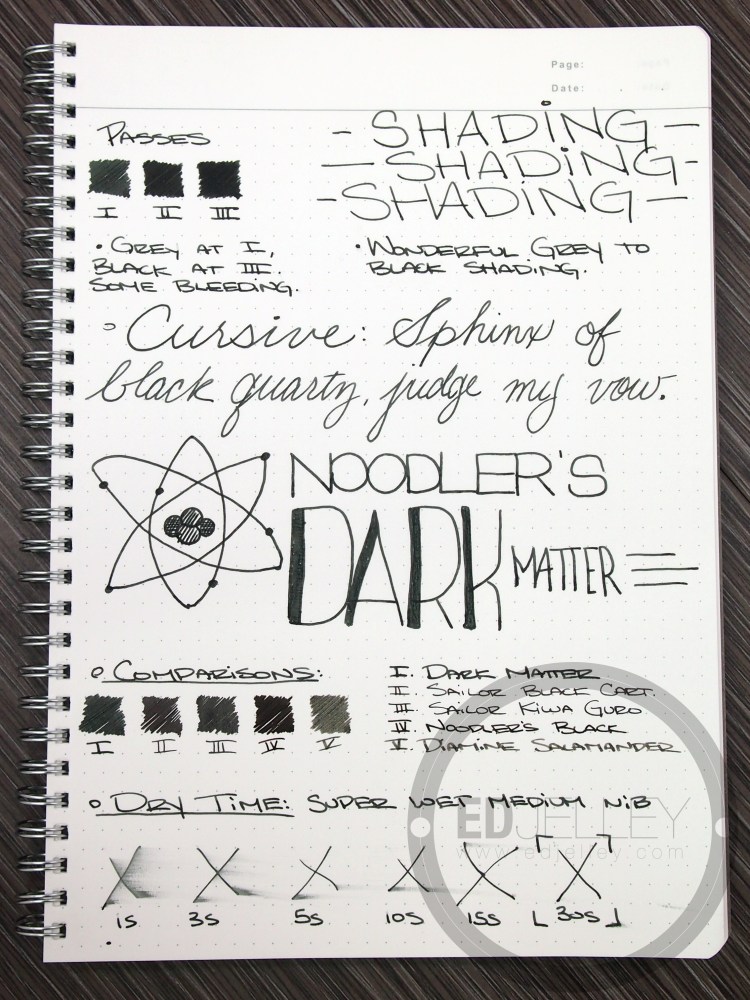 Page:
Date:
PASSES
I II III
- SHADING -
- SHADING -
- SHADING -
• GREY AT I,
BLACK AT III.
SOME BLEEDING.
• WONDERFUL GREY TO
BLACK SHADING.
Cursive: Sphinx of
black quartz, judge my vow.
NOODLER'S
DARK MATTER
COMPARISONS:
I II III IV V
I. DARK MATTER
II. SAILOR BLACK CART.
III. SAILOR KIWA GURO
IV. NOODLER'S BLACK
V. DIAMINE SALAMANDER
DRY TIME: SUPER WET MEDIUM NIB
EDJELLEY
www.edjelley.com
X X X X X X
1S 3S 5S 10S 15S 30S